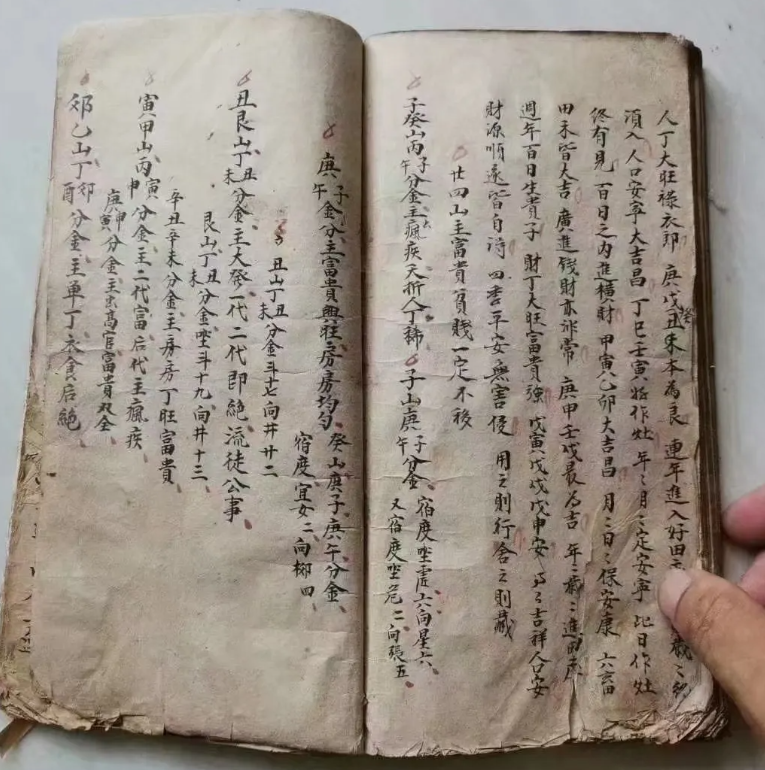 人丁大旺祿衣郎 庚戌癸丑未本為良 連年進入好田 歲〻
須入 人口安寧大吉昌 丁巳壬寅將作灶 年〻月〻定安寧 此日作灶
終有見 百日之內進橫財 甲寅乙卯大吉昌 月〻日〻保安康 六畜
田禾皆大吉 廣進錢財亦非常 庚申壬戌最為吉 年〻歲〻進田庄
週年百日生貴子 財丁大旺富貴強 戊寅戊戌戊申安 〻吉祥人口安
財源順遂皆自得 四季平安無害侵 用之則行舍之則藏
廿四山主富貴貧賤一定不移
子癸山丙子丙午分金主瘋疾夭折人丁稀 子山庚子庚午分金
宿度坐虛六向星六
又宿度坐危二向張五
庚子庚午金分主富貴興旺房房均勻
癸山庚子庚午分金
宿度宜女二向柳四
丑山丁丑丁未分金斗十七向井廿二
丑艮山丁丑丁未分金主大發一代二代即絕流徒公事
艮山丁丑丁未分金坐斗十九向井十三
辛丑辛未分金主房房丁旺富貴
寅甲山丙寅丙申分金主二代富后代主瘋疾
庚寅庚申分金主出高官富貴双全
卯乙山丁卯丁酉分金主單丁衣食后絕